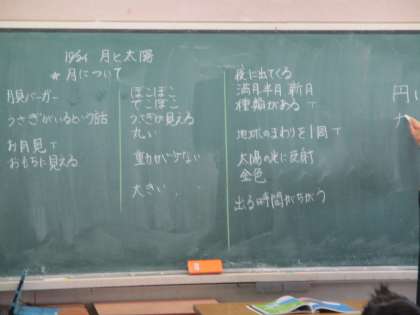 10/24 月と太陽
★月について
月見バーガー
うさぎがいるという話
お月見T
おもちに見える
ぼこぼこ
でこぼこ
うさぎが見える
丸い
重力が少ない
大きい
夜に出てくる
満月 半月 新月
種類がある T
地球のまわりを1周T
太陽の光に反射
金色
出る時間がちがう
円い